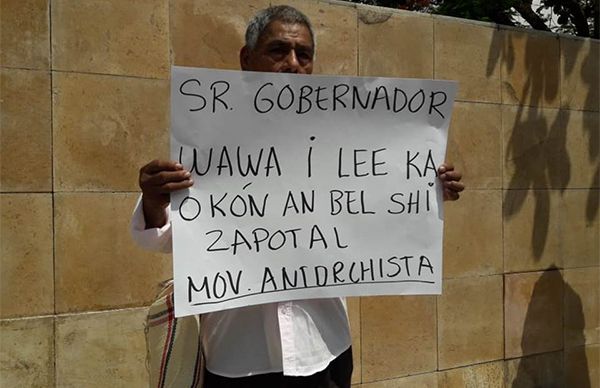 SR. GOBERNADOR
WAWA i LEE KA
OKÓN AN BEL SHi
ZAPOTAL
MOV. ANTORCHISTA